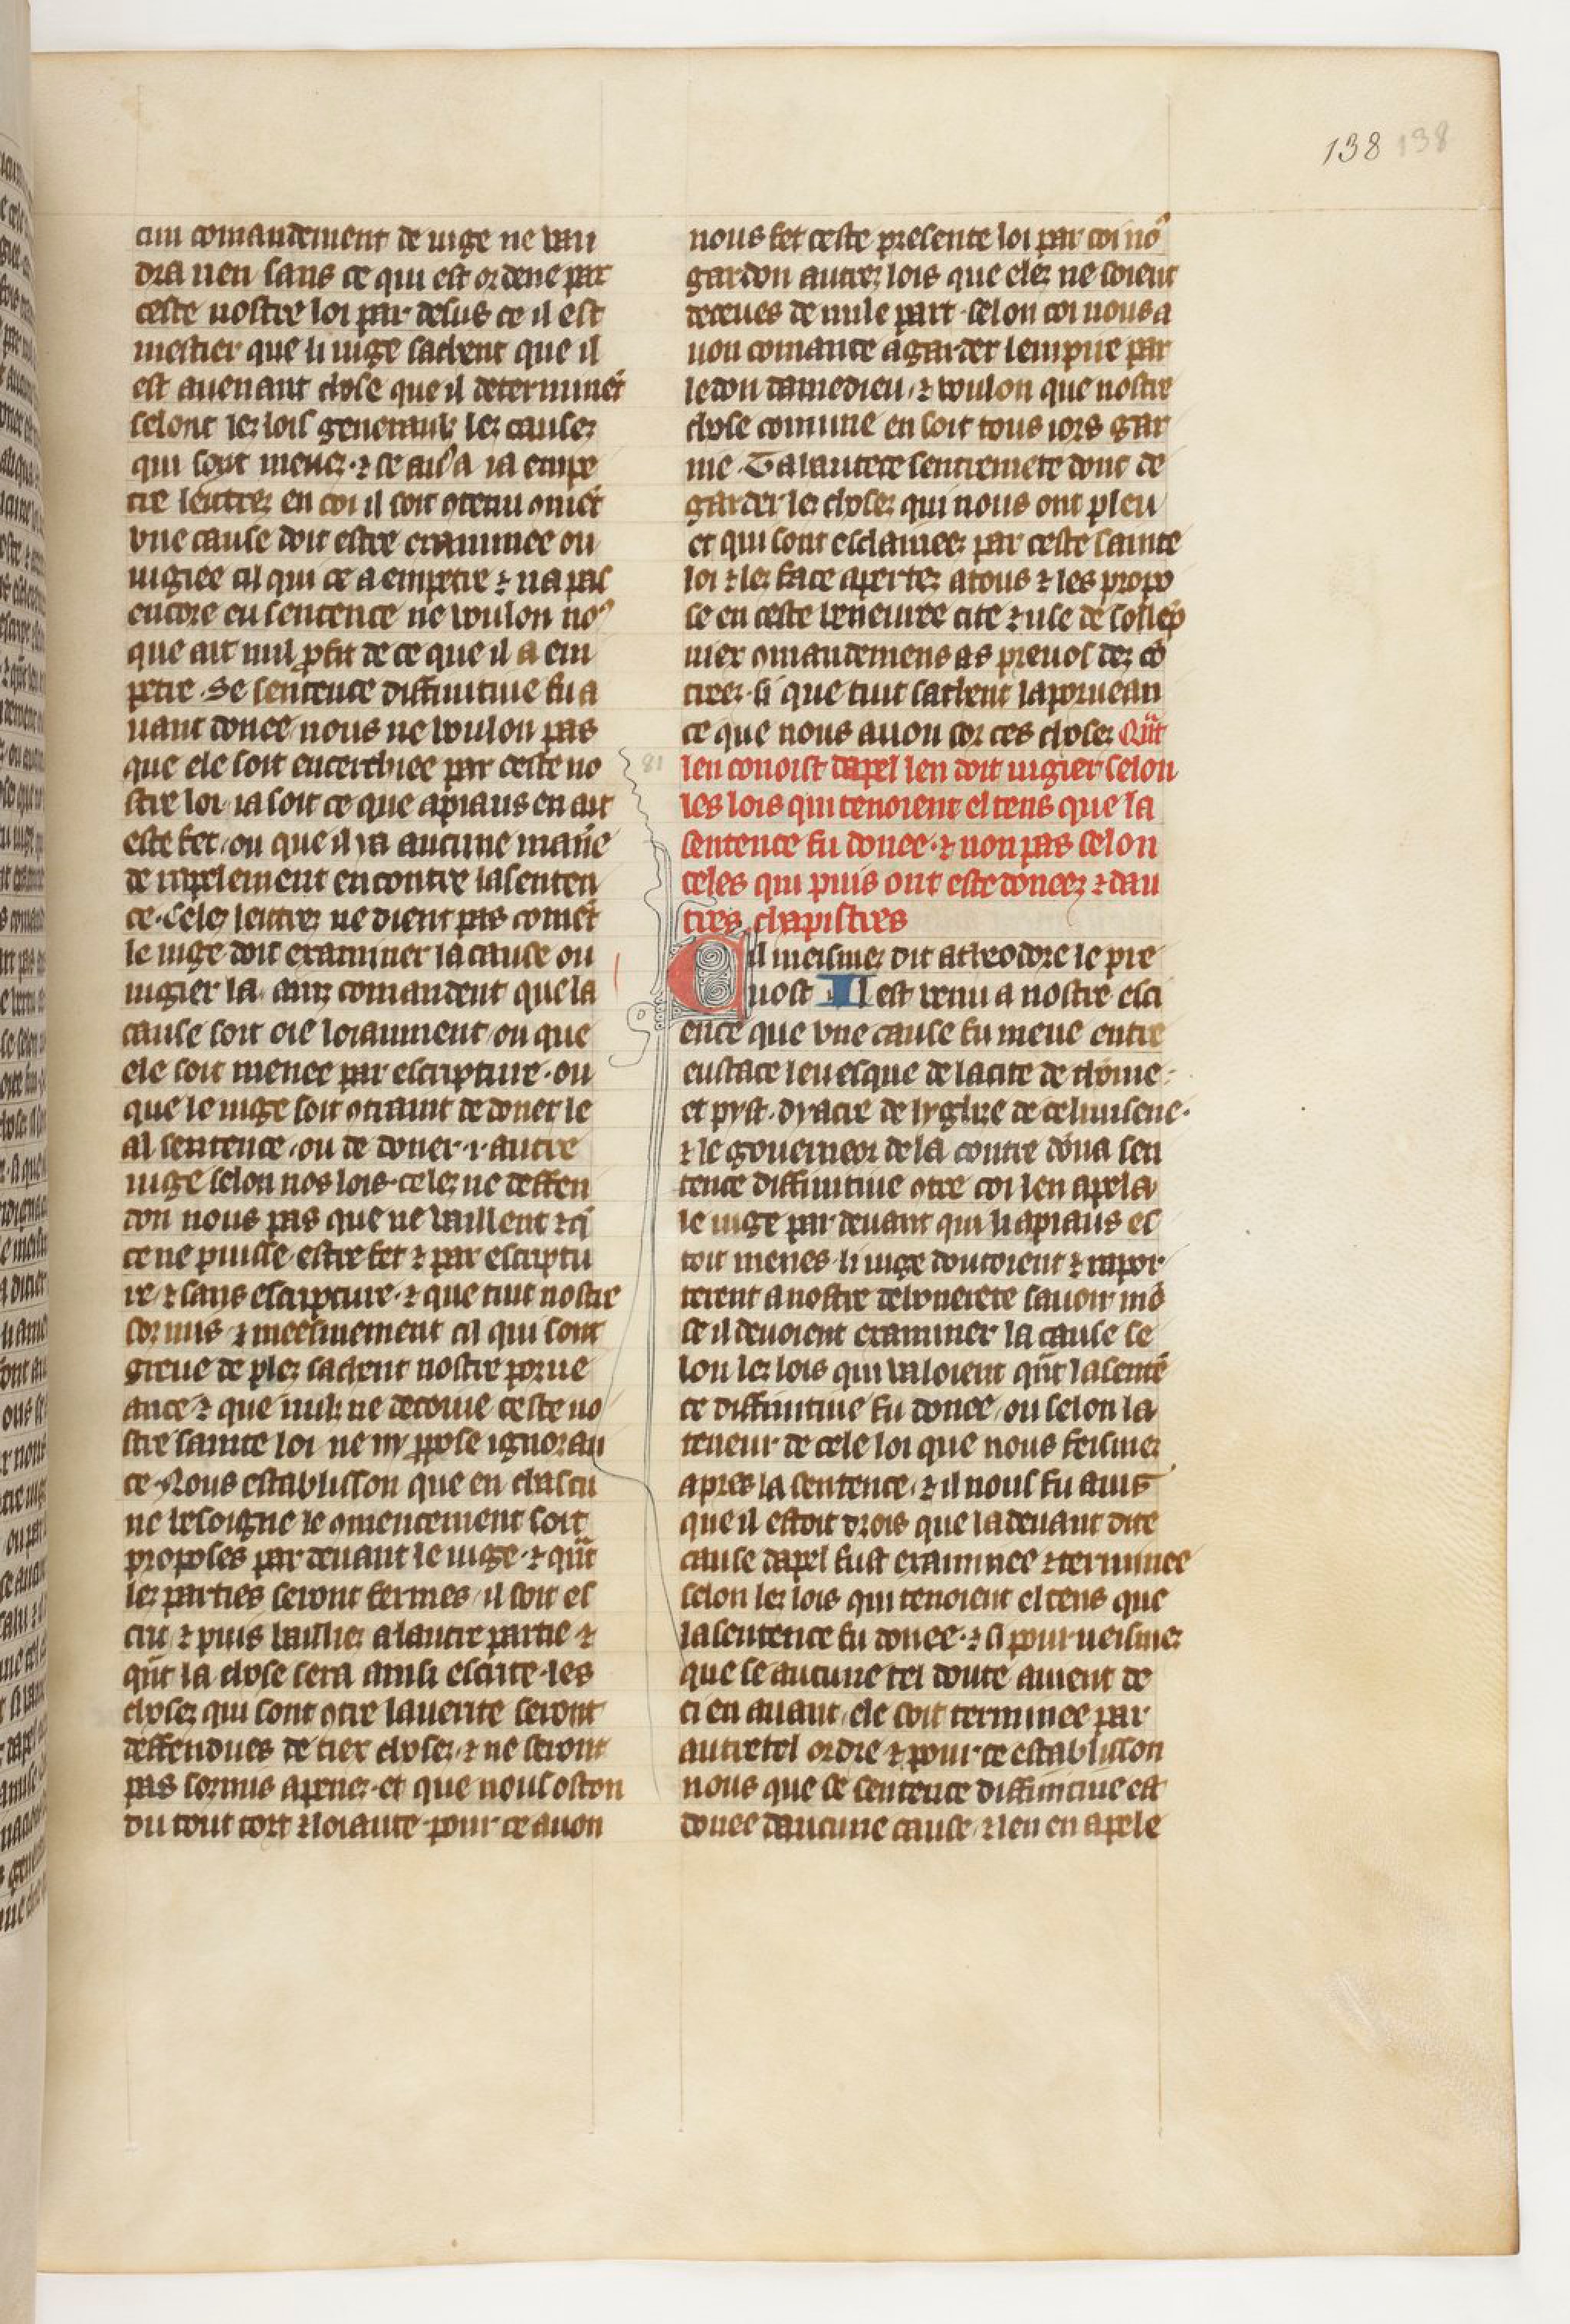 138 138
cun comandement de iuge ne vau
dra rien sans ce qui est ordene par
ceste nostre loi par desus ce il est
mestier que li iuge sachent que il
est auenant chose que il determinẽt
selonc lez lois generaus lez causez
qui sont meuez · ⁊ se aucũs a ia empe
tre lettrez en coi il soit ꝯtenu ꝯmẽt
vne cause doit estre examinee ou
iugiee cil qui ce a empetre ⁊ na pas
encore eu sentence ne voulon noꝰ
que ait nul ꝓfit de ce que il a em
petre · Se sentence diffinitiue fu a
uant donee nous ne voulon pas
que ele soit encerchiee par ceste no
stre loi ia soit ce que apiaus en ait
este fet / ou que il i a aucune mañe
de rapelement encontre la senten
ce · Celez lettrez ne dient pas comẽt
le iuge doit examiner la cause ou
iugier la · ainz comandent que la
cause soit oie loiaument / ou que
ele soit menee par escripture · ou
que le iuge soit ꝯtraint de doner le
al sentence / ou de doner · i · autre
iuge selon nos lois · celez ne deffen
don nous pas que ne vaillent ⁊ q̃
ce ne puisse estre fet ⁊ par escriptu
re / ⁊ sans escripture · ⁊ que tuit nostre
sozmis ⁊ meesmement cil qui sont
greue de plez sachent nostre porue
ance ⁊ que nulz ne decoiue ceste no
stre sainte loi ne ni ꝓpose ignoran
ce · Nous establisson que en chascu
ne besoigne le ꝯmencement soit
proposes par deuant le iuge · ⁊ qũt
lez parties seront fermes / il soit es
crit ⁊ puis baillier a lautre partie ⁊
qũt la chose sera ainsi escrite · les
chosez qui sont ꝯtre la uerite seront
deffendues de tiex chosez ⁊ ne seront
pas sozmis a penez · et que nous oston
du tout tort ⁊ loiaute · pour ce auon
nous fet ceste presente loi par coi nõ
gardon autrez lois que elez ne soient
deceues de nule part · selon coi nous a
uon comance a garder lempire par
le don damedieu · ⁊ voulon que nostre
chose comune en soit tous iors gar
nie · Ta lautece sentremete donc de
garder lez chosez qui nous ont pleu
et qui sont esclairiees par ceste sainte
loi ⁊ lez face apertez a tous ⁊ les propo
se en ceste beneuree cite ⁊ use de sollẽp
niex ꝯmandemens as preuos dez cõ
trez · si que tuit sachent la poruean
ce que nous auon sor ces chosez Qũt
81
len conoist dapel len doit iugier selon
les lois qui tenoient el tens que la
sentence fu donee · ⁊ non pas selon
celes qui puis ont este doneez ⁊ dau
tres chapistres
Cil meismez dit a theodore le pre
uost Il est venu a nostre esci
ence que vne cause fu meue entre
eustace leuesque de la cite de thôme ·
et pyst · dyacre de lyglize de celui siene ·
⁊ le gouerneor de la contre dôna sen
tence diffinitiue ꝯtre coi len apela
le iuge par deuant qui li apiaus es
toit menes · li iuge doutoient ⁊ rapor
terent a nostre debonerete sauoir mõ
se il deuoient examiner la cause se
lon lez lois qui valoient qũt la sentẽ
ce diffinitiue fu donee / ou selon la
teneur de cele loi que nous feismez
apres la sentence · ⁊ il nous fu auis
que il estoit drois que la deuant dite
cause dapel fust examinee ⁊ terminee
selon lez lois qui tenoient el tens que
la sentence fu donee · ⁊ si pourueismez
que se aucune tel doute auient de
ci en auant / ele soit terminee par
autretel ordre ⁊ pour ce establisson
nous que se sentence diffinitiue est
donee daucune cause / ⁊ len en apele